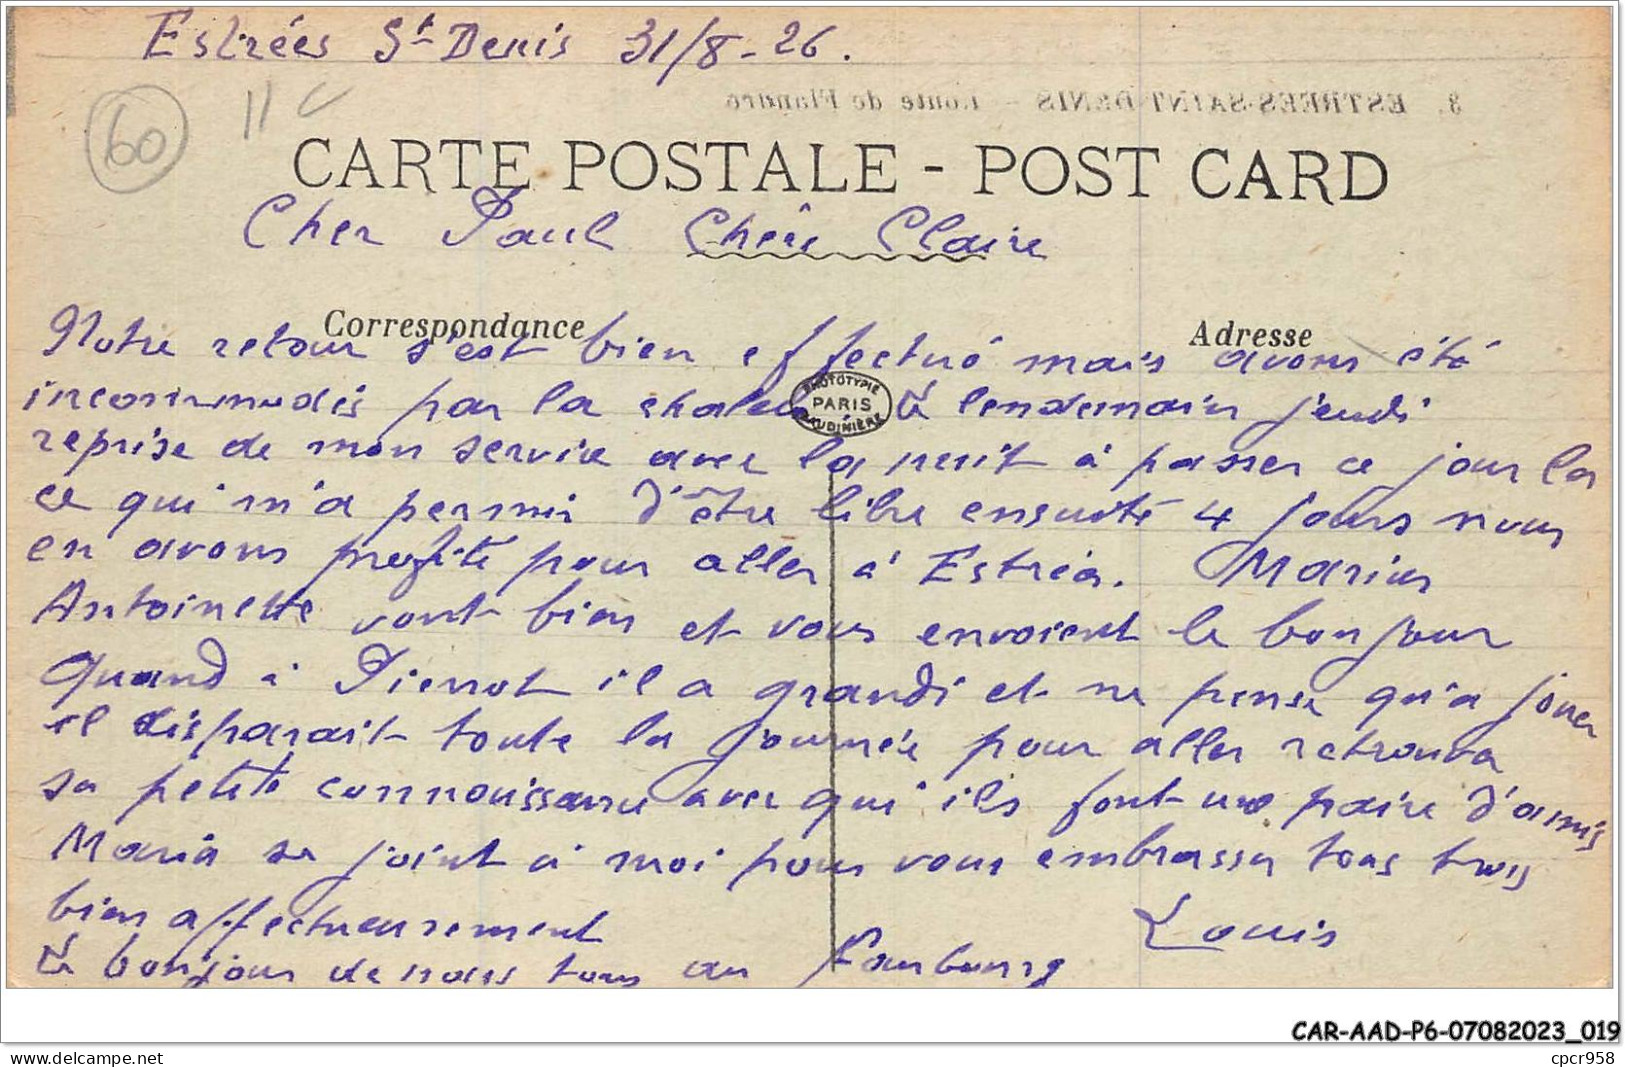 Estrées St Denis 31/8-26.
3. ESTREES-SAINT-DENIS - Route de Flandre
60
CARTE POSTALE - POST CARD
Cher Paul Chère Claire
Correspondance
Adresse
Notre retour s'est bien effectué mais avons été
incommodés par la chaleur. Le lendemain jeudi
PHOTOTYPIE PARIS BAUDINIÈRE
reprise de mon service avec la nuit à passer ce jour la
ce qui m'a permis d'être libre ensuite 4 jours nous
en avons profité pour aller à Estrées. Marius
Antoinette vont bien et vous envoient le bonjour
Quand à Pierrot il a grandi et ne pense qu'a jouer
il disparait toute la journée pour aller retrouver
sa petite connaissance avec qui ils font une paire d'amis
Maria se joint à moi pour vous embrasser tous trois
bien affectueusement
Louis
Le bonjour de nous tous au Faubourg
CAR-AAD-P6-07082023_019
https://www.delcampe.net
cpcr958